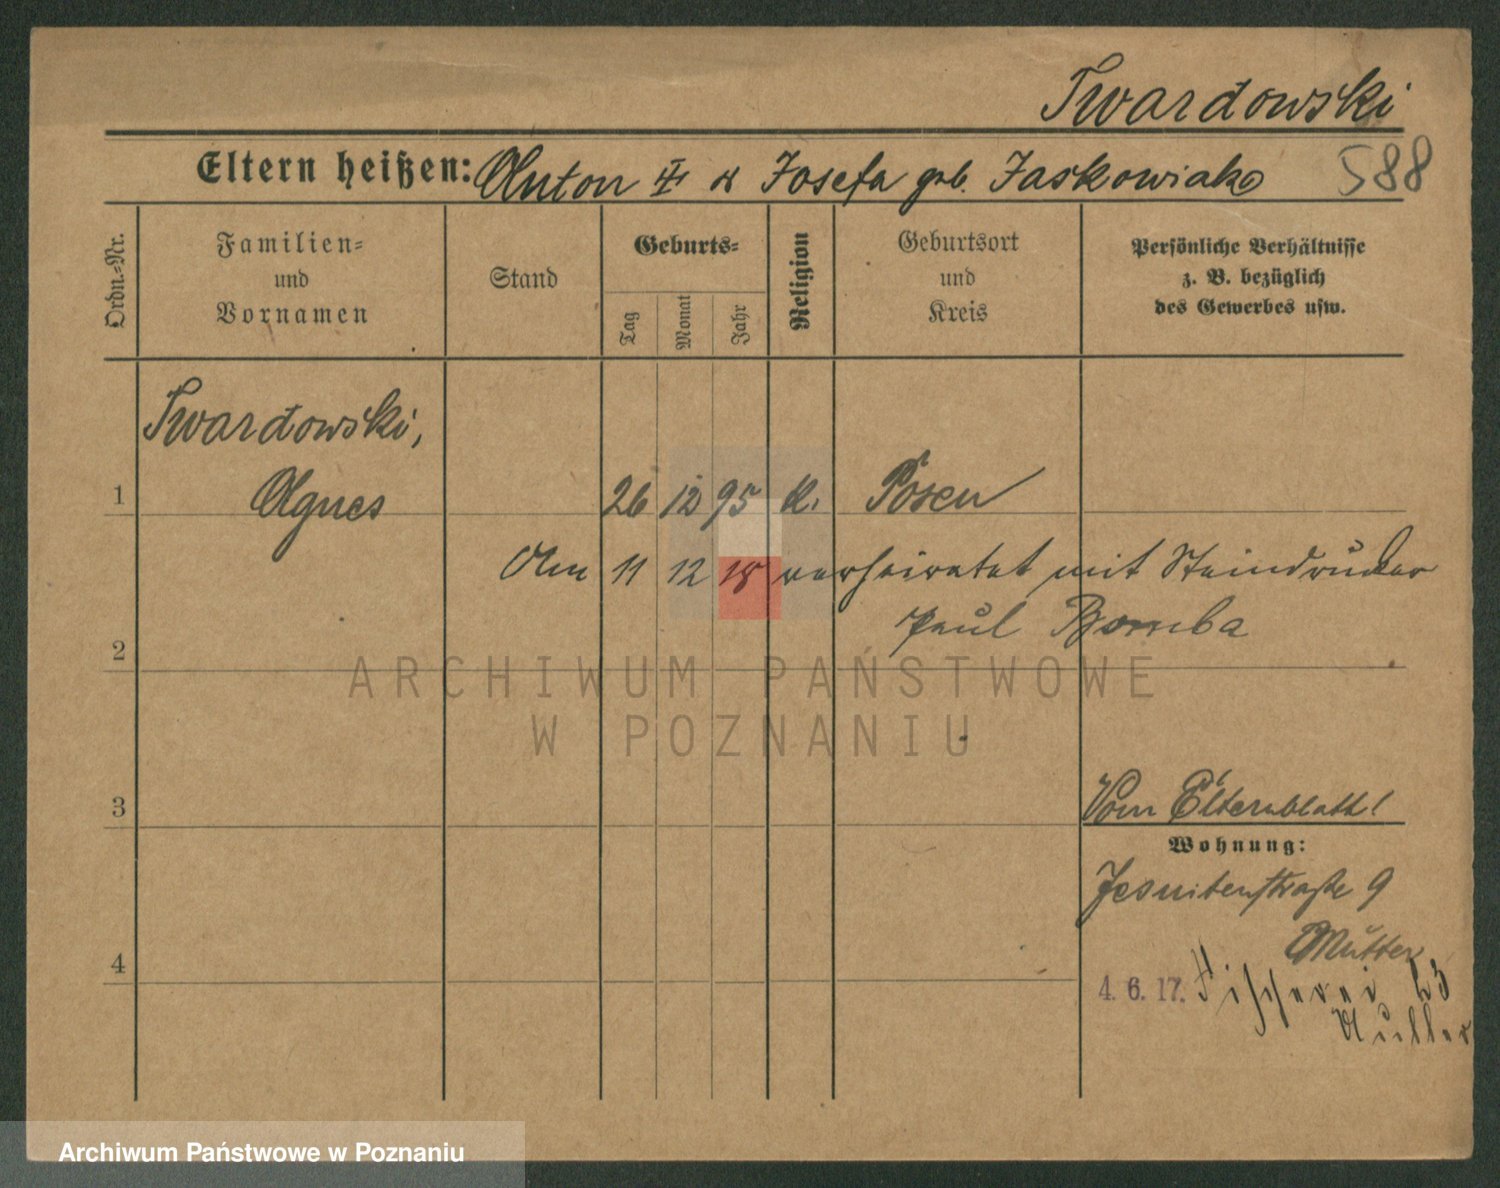 Twardowski
Eltern heißen: Anton ‡ u Josefa geb. Jaskowiak 588
Ordn.-Nr.
Familien-
und
Vornamen
Stand
Geburts-
Tag
Monat
Jahr
Religion
Geburtsort
und
Kreis
Persönliche Verhältnisse
z. B. bezüglich
des Gewerbes usw.
Twardowski,
1 Agnes 26 12 95 k. Posen
Am 11 12 18 verheiratet mit Steindrucker
Paul Bomba
2
ARCHIWUM PAŃSTWOWE
W POZNANIU
3 Vom Elternblatt!
Wohnung:
Jesuitenstraße 9
Mutter
4
4. 6. 17. Fischerei
Archiwum Państwowe w Poznaniu